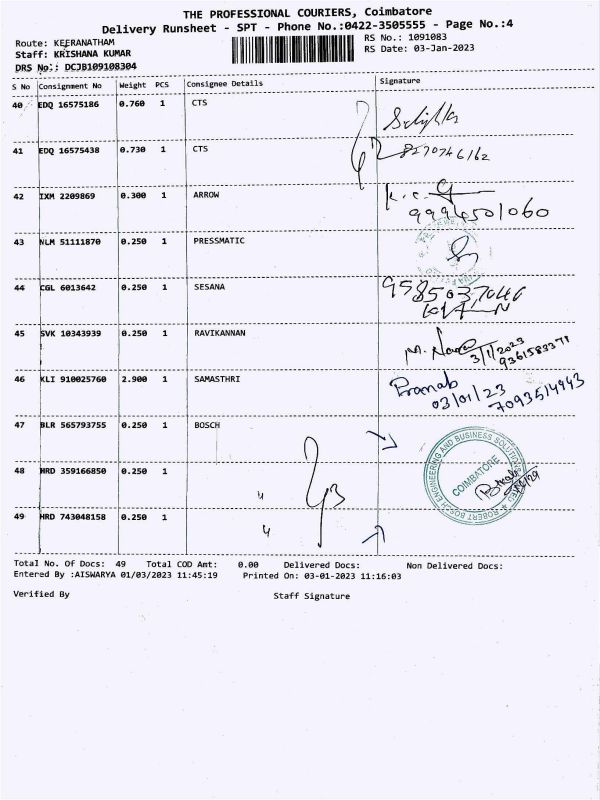 THE PROFESSIONAL COURIERS, Coimbatore
Delivery Runsheet - SPT - Phone No.:0422-3505555 - Page No.:4
Route: KEERANATHAM
RS No.: 1091083
Staff: KRISHANA KUMAR
RS Date: 03-Jan-2023
DRS No.: DCJB109108304
S No Consignment No Weight PCS Consignee Details Signature
40 EDQ 16575186 0.760 1 CTS
41 EDQ 16575438 0.730 1 CTS 8270746162
42 IXM 2209869 0.300 1 ARROW K.C.
9994501060
43 NLM 51111870 0.250 1 PRESSMATIC
44 CGL 6013642 0.250 1 SESANA 9585037046
45 SVK 10343939 0.250 1 RAVIKANNAN
3/1/2023
9361583371
46 KLI 910025760 2.900 1 SAMASTHRI Pranab
03/01/23
7093514943
47 BLR 565793755 0.250 1 BOSCH
48 HRD 359166850 0.250 1 "
49 HRD 743048158 0.250 1 "
ROBERT BOSCH ENGINEERING AND BUSINESS SOLUTIONS
COIMBATORE
Total No. Of Docs: 49 Total COD Amt: 0.00 Delivered Docs: Non Delivered Docs:
Entered By :AISWARYA 01/03/2023 11:45:19 Printed On: 03-01-2023 11:16:03
Verified By Staff Signature